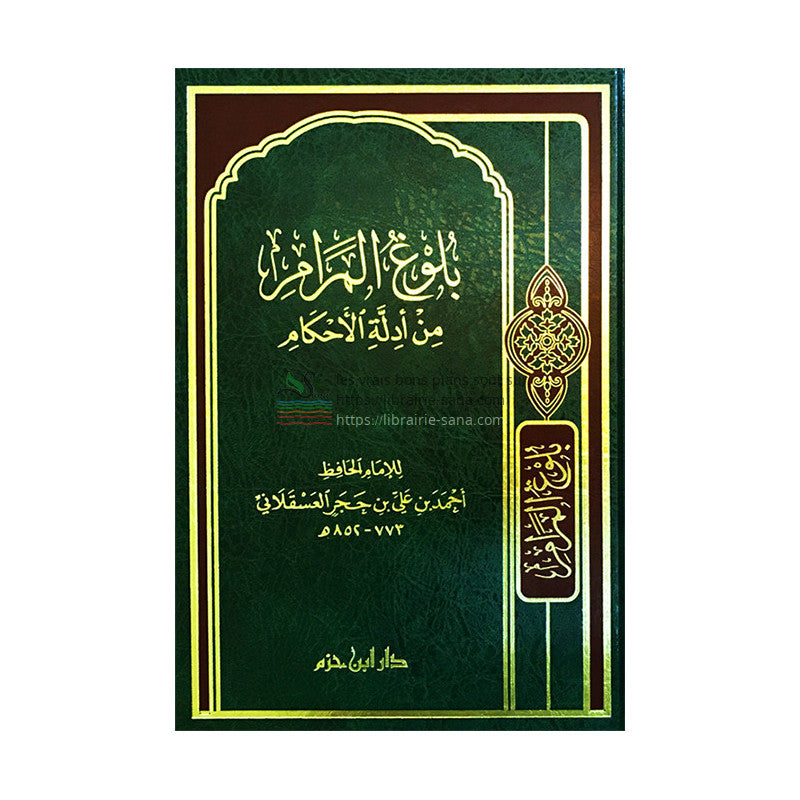 بُلُوْغُ المَرَامِ
مِنْ أَدِلَّةِ الأَحْكَامِ
les vrais bons plans sont s
https://librairie-sana.com
https://librairie-sana.com
لِلإِمَامِ الحَافِظِ
أَحْمَدَ بْنِ عَلِيِّ بْنِ حَجَرٍ العَسْقَلَانِيِّ
٧٧٣ - ٨٥٢ هـ
بُلُوْغُ المَرَامِ
دار ابن حزم